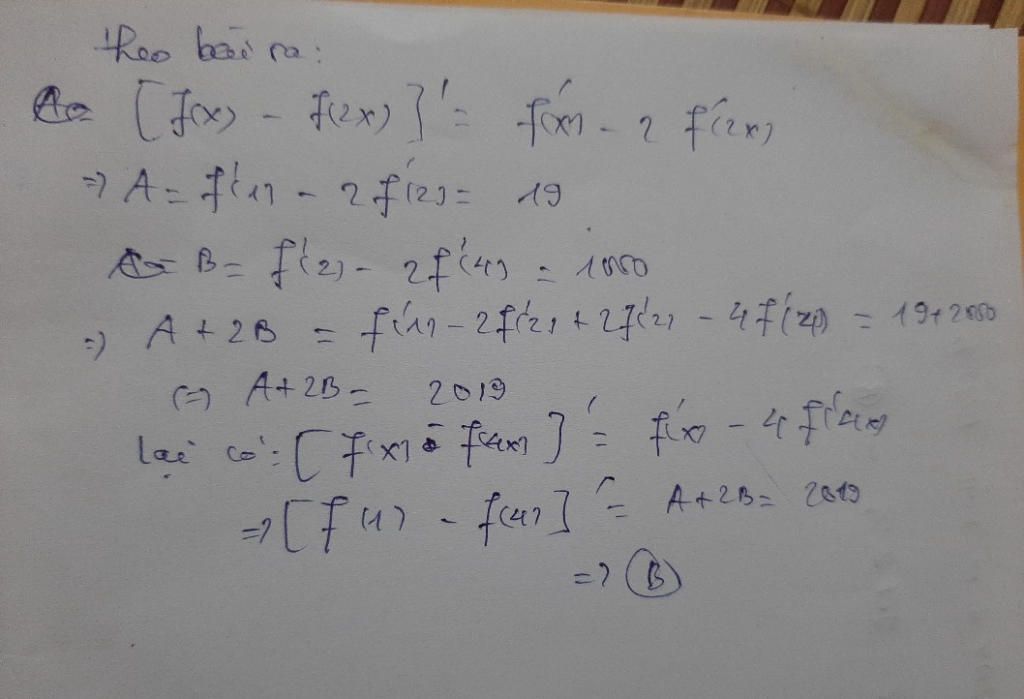 theo bài ra:
[f(x) - f(2x)]' = f'(x) - 2 f'(2x)
=> A = f'(1) - 2 f'(2) = 19
B = f'(2) - 2f'(4) = 1000
=> A + 2B = f'(1) - 2f'(2) + 2f'(2) - 4f'(4) = 19+2000
<=> A+2B = 2019
lại có: [f(x) - f(4x)]' = f'(x) - 4f'(4x)
=> [f(1) - f(4)]' = A+2B = 2019
=> B